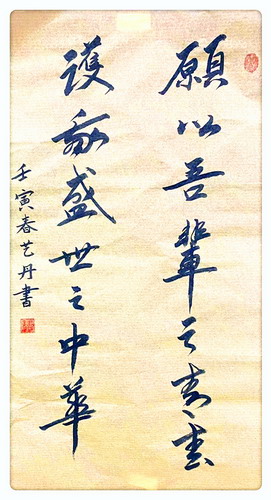 願以吾輩之青春
護我盛世之中華
壬寅春艺丹書